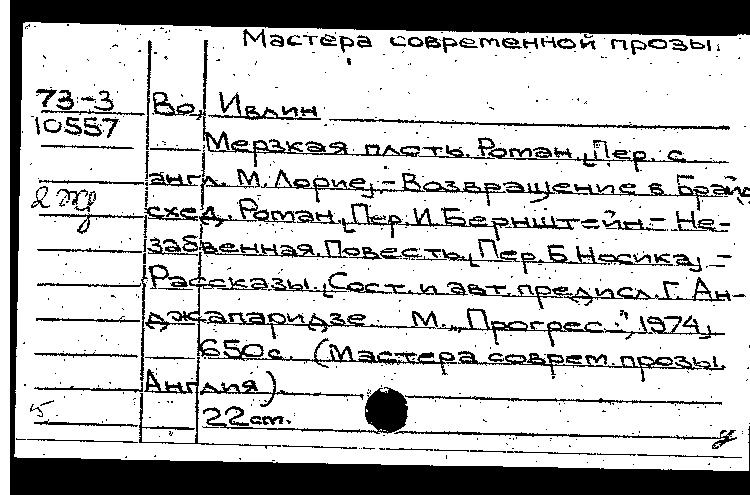 Мастера современной прозы.
73-3 Во, Ивлин
10557
Мерзкая плоть. Роман. [Пер. с
англ. М. Лорие]. - Возвращение в Брайд
схед. Роман. [Пер. И. Бернштейн. - Не-
забвенная. Повесть. [Пер. Б. Носика]. -
Рассказы. [Сост. и авт. предисл. Г. Ан-
джапаридзе. М., "Прогрес.", 1974]
650с. (Мастера соврем. прозы.
Англия).
22 ст.